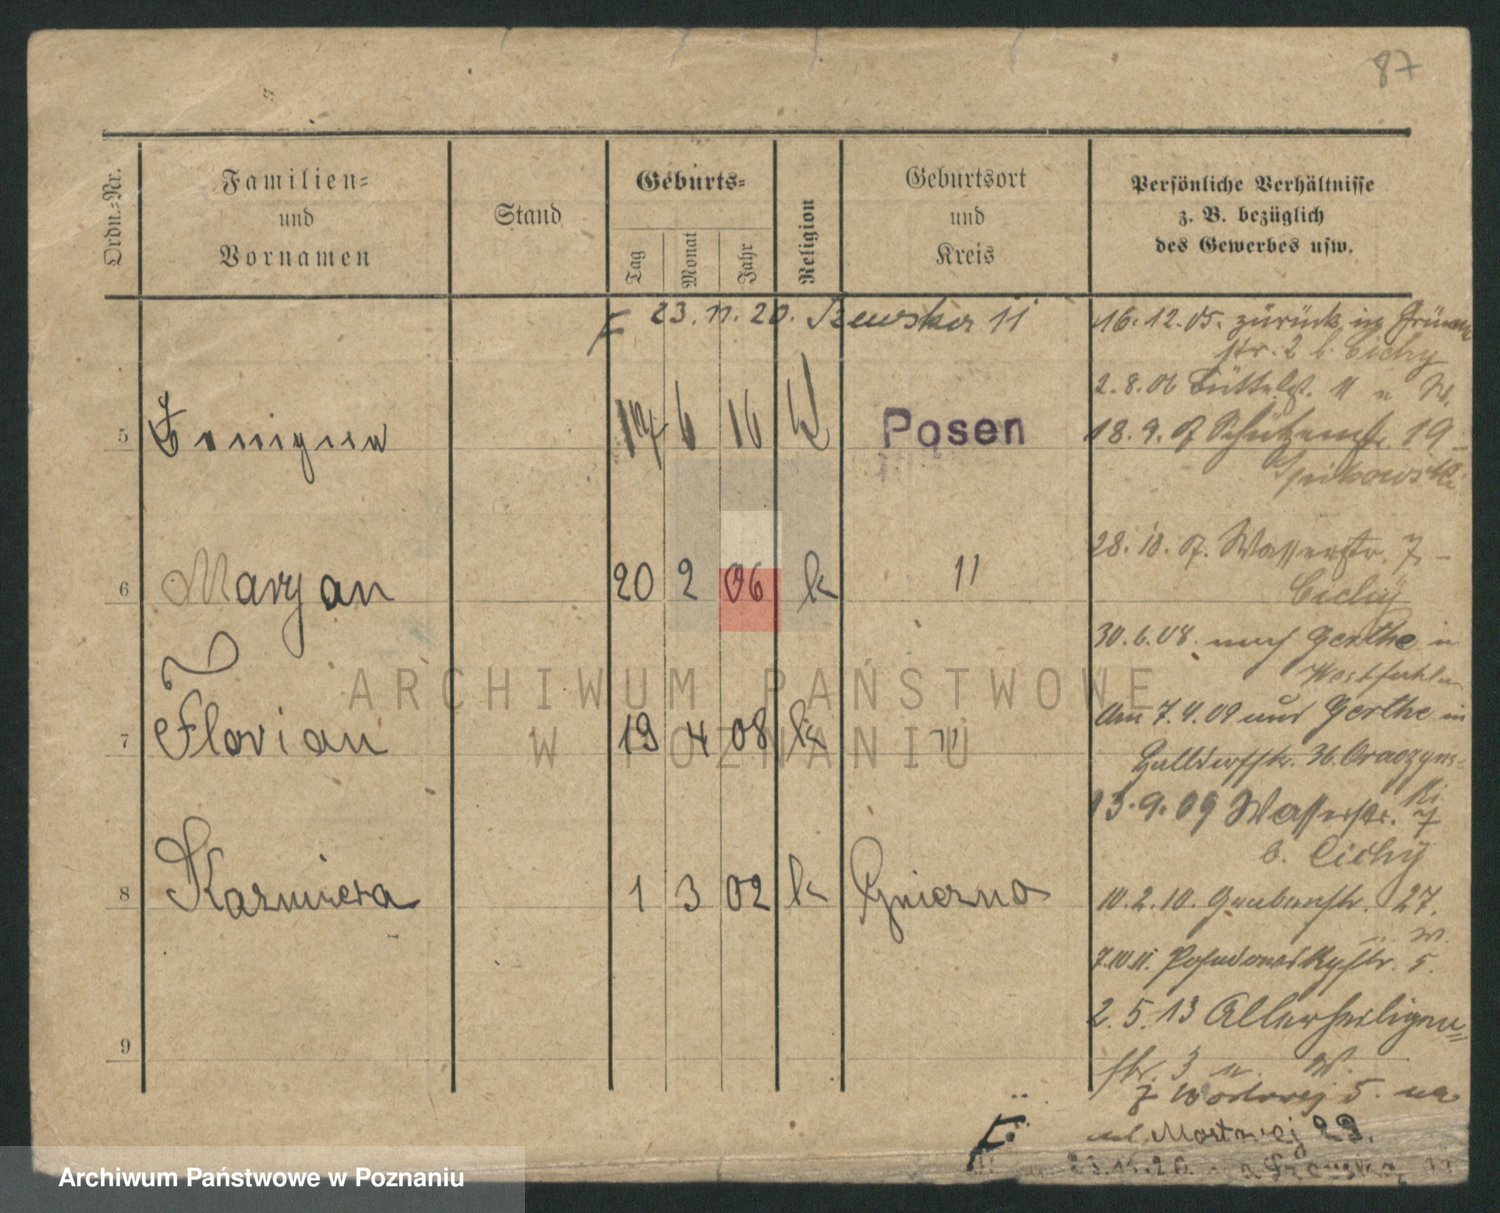 87
Ordn.-Nr.
Familien-
und
Vornamen
Stand
Geburts-
Tag
Monat
Jahr
Religion
Geburtsort
und
Kreis
Persönliche Verhältnisse
z. B. bezüglich
des Gewerbes usw.
F 23. 11. 20. Szewska 11
16. 12. 05. zurück in
str. 2 b. Cichy
2. 8. 06 Büttelst. 11
5 6 16 k Posen
18. 9. 07 Schützenstr. 19
28. 10. 07. Wasserstr. 7
6 Maryan 20 2 06 k "
Cichy
30. 6. 08. nach Gerthe in
Westfalen
Am 7. 4. 09 aus Gerthe in
7 Florian 19 4 08 k "
36.
13. 9. 09 Wasserstr. 7
b. Cichy
8 Kazmiera 1 3 02 k Gniezno
10. 2. 10. Grabenstr. 27.
7. 10. 11. 5.
2. 5. 13 Allerheiligen-
str. 3
9
z Wodnej 5. na
ul. Mostowej 23.
F.
23.11.20. na Szewską 11
ARCHIWUM PAŃSTWOWE
W POZNANIU
Archiwum Państwowe w Poznaniu